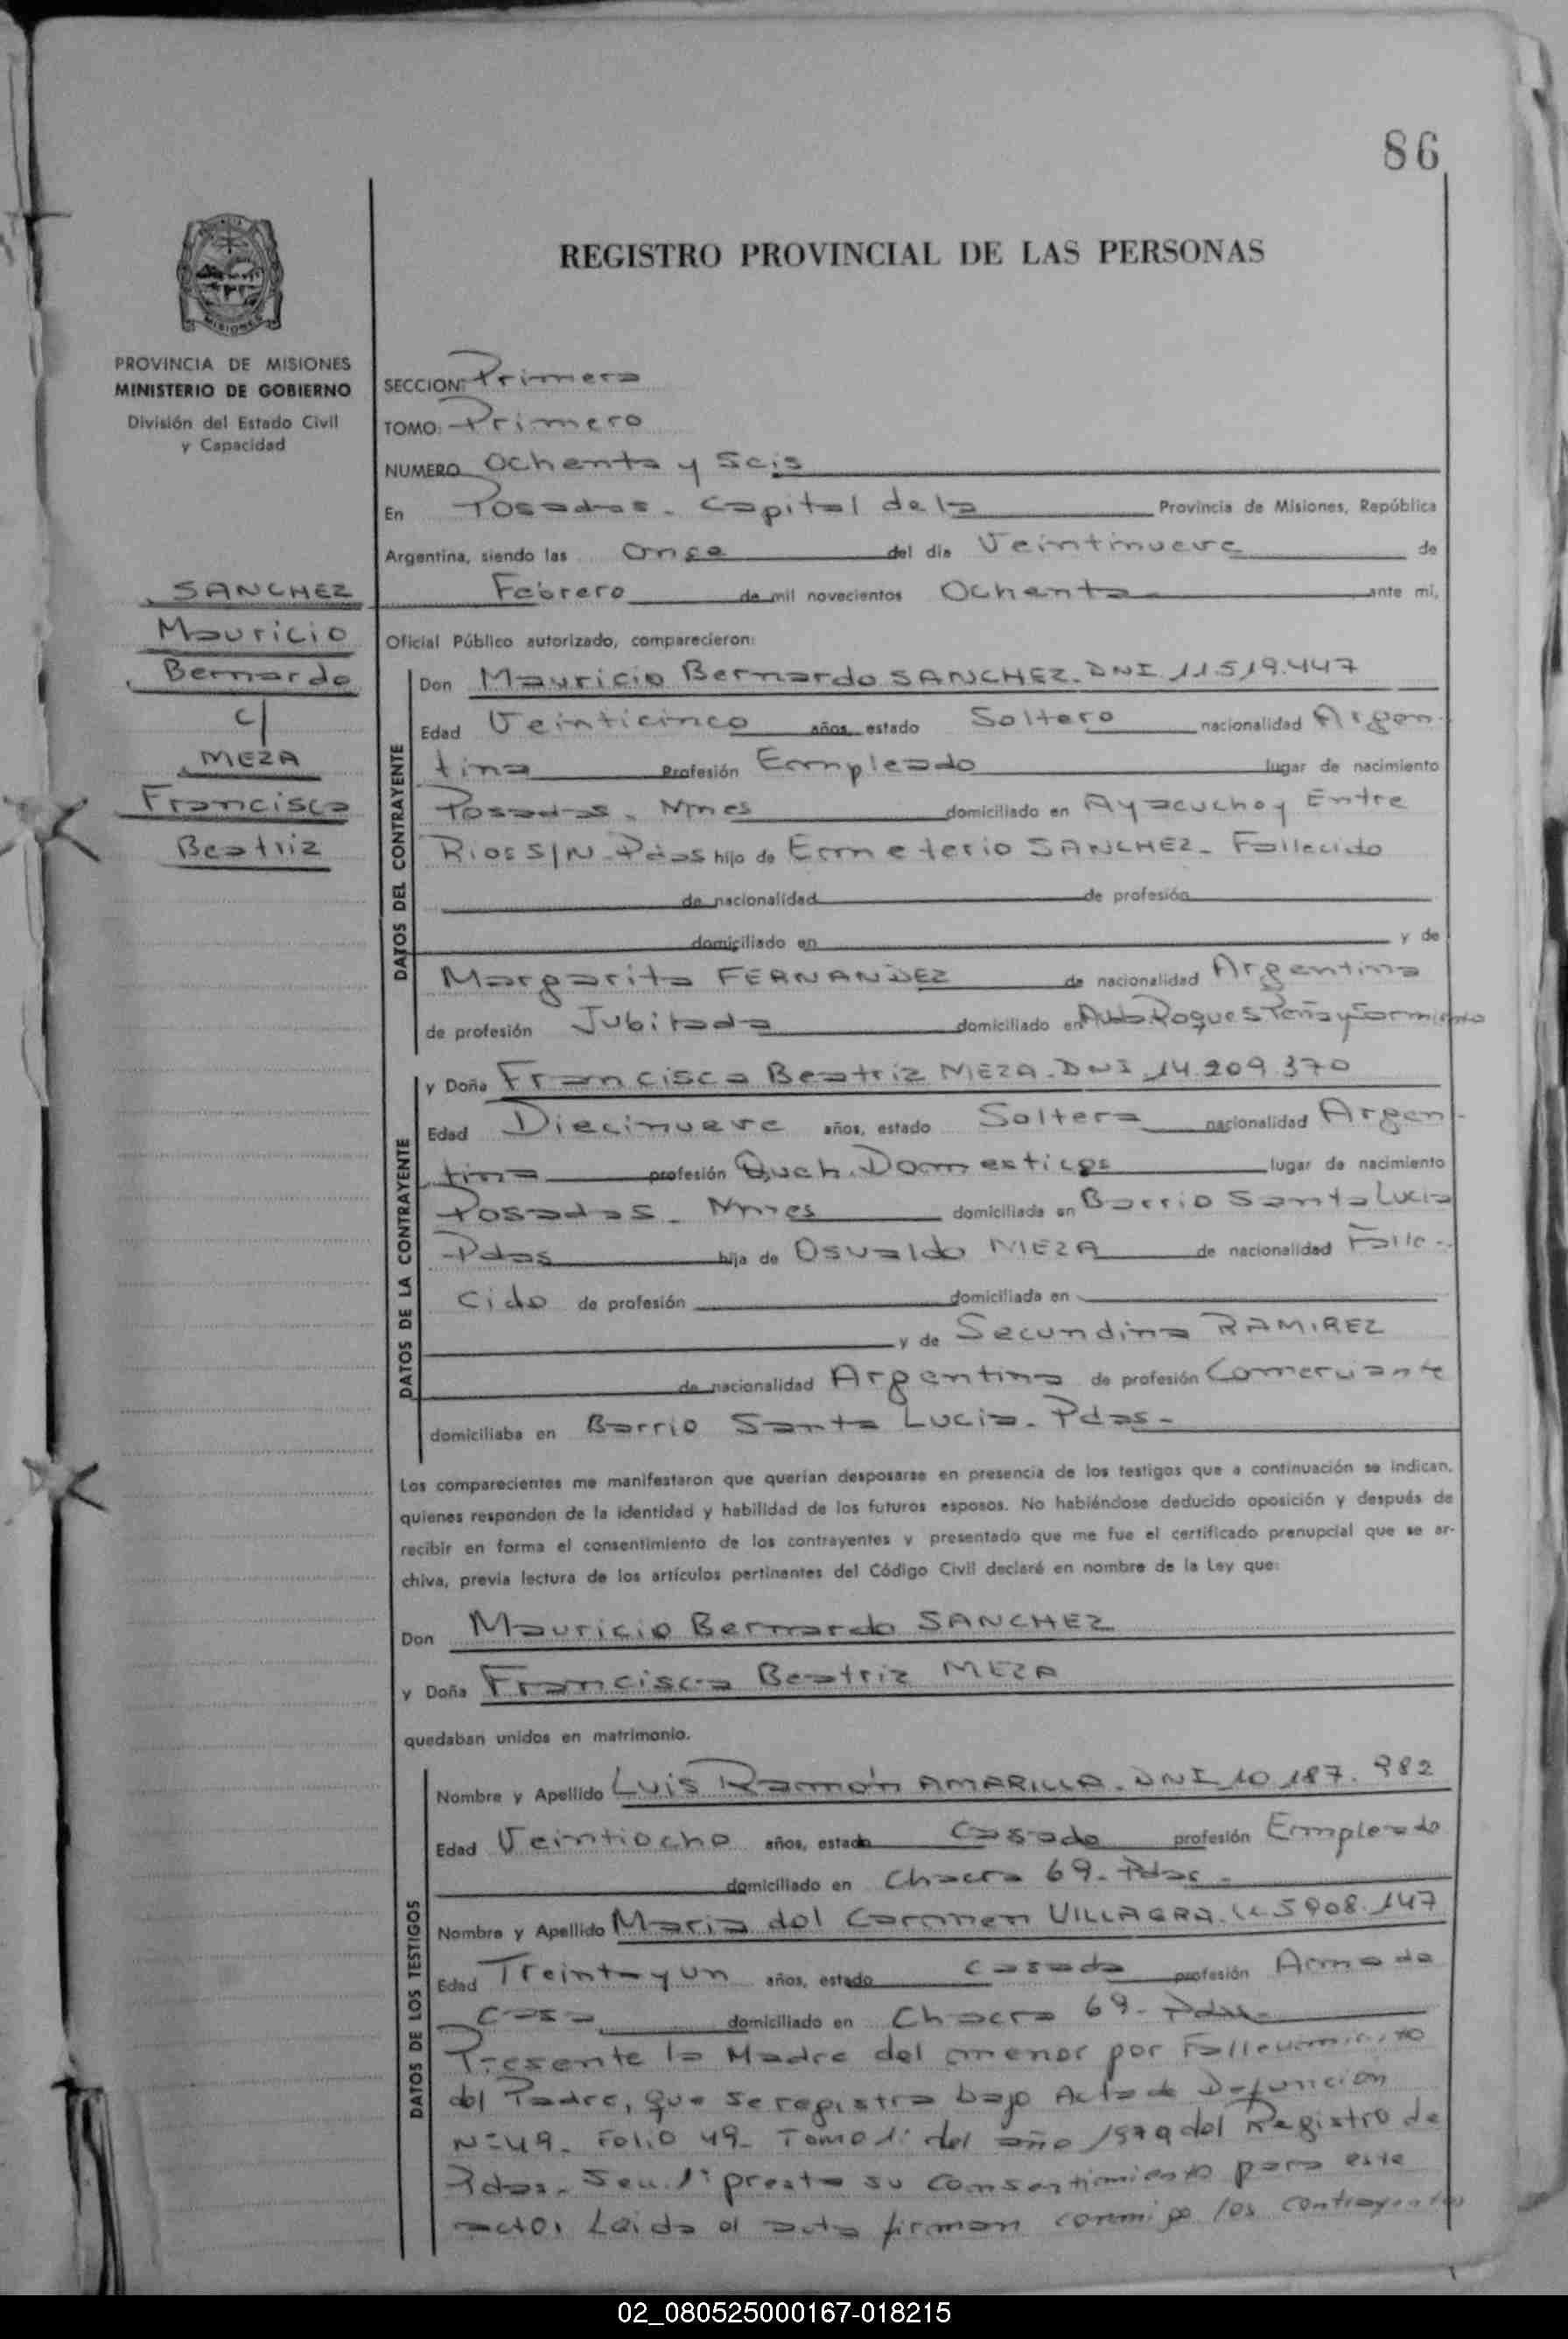 86
REGISTRO PROVINCIAL DE LAS PERSONAS
MISIONES
PROVINCIA DE MISIONES
MINISTERIO DE GOBIERNO
División del Estado Civil
y Capacidad
SANCHEZ
Mauricio
Bernardo
c/
MEZA
Francisca
Beatriz
SECCION: Primera
TOMO: Primero
NUMERO Ochenta y Seis
En Posadas. Capital de la Provincia de Misiones, República
Argentina, siendo las Once del día Veintinueve de
Febrero de mil novecientos Ochenta ante mí,
Oficial Público autorizado, comparecieron:
DATOS DEL CONTRAYENTE
Don Mauricio Bernardo SANCHEZ. DNI 11.519.447
Edad Veinticinco años, estado Soltero nacionalidad Argen-
tina Profesión Empleado lugar de nacimiento
Posadas. Mnes domiciliado en Ayacucho y Entre
Rios S/N. Pdas hijo de Ermeterio SANCHEZ. Fallecido
de nacionalidad de profesión
domiciliado en y de
Margarita FERNANDEZ de nacionalidad Argentina
de profesión Jubilada domiciliado en Avda Roque S Peña y Sarmiento
DATOS DE LA CONTRAYENTE
y Doña Francisca Beatriz MEZA. DNI 14.209.370
Edad Diecinueve años, estado Soltera nacionalidad Argen-
tina profesión Queh. Domesticos lugar de nacimiento
Posadas. Mnes domiciliada en Barrio Santa Lucia
Pdas hija de Osvaldo MEZA de nacionalidad Falle-
cido de profesión domiciliada en
y de Secundina RAMIREZ
de nacionalidad Argentina de profesión Comerciante
domiciliaba en Barrio Santa Lucia. Pdas-
Los comparecientes me manifestaron que querían desposarse en presencia de los testigos que a continuación se indican,
quienes responden de la identidad y habilidad de los futuros esposos. No habiéndose deducido oposición y después de
recibir en forma el consentimiento de los contrayentes y presentado que me fue el certificado prenupcial que se ar-
chiva, previa lectura de los artículos pertinentes del Código Civil declaré en nombre de la Ley que:
Don Mauricio Bernardo SANCHEZ
y Doña Francisca Beatriz MEZA
quedaban unidos en matrimonio.
DATOS DE LOS TESTIGOS
Nombre y Apellido Luis Ramón AMARILLA. DNI 10.187.982
Edad Veintiocho años, estado Casado profesión Empleado
domiciliado en Chacra 69. Pdas-
Nombre y Apellido Maria del Carmen VILLAGRA. LC 5908.147
Edad Treinta y un años, estado casada profesión Ama de
casa domiciliado en Chacra 69- Pdas-
Presente la Madre del menor por Fallecimiento
del Padre, que se registra bajo Acta de Defunción
Nº 49. Folio 49. Tomo 1º del año 1979 del Registro de
Pdas. Sec. 1º presta su consentimiento para este
acto. Leida el acta firman conmigo los contrayentes
02_080525000167-018215